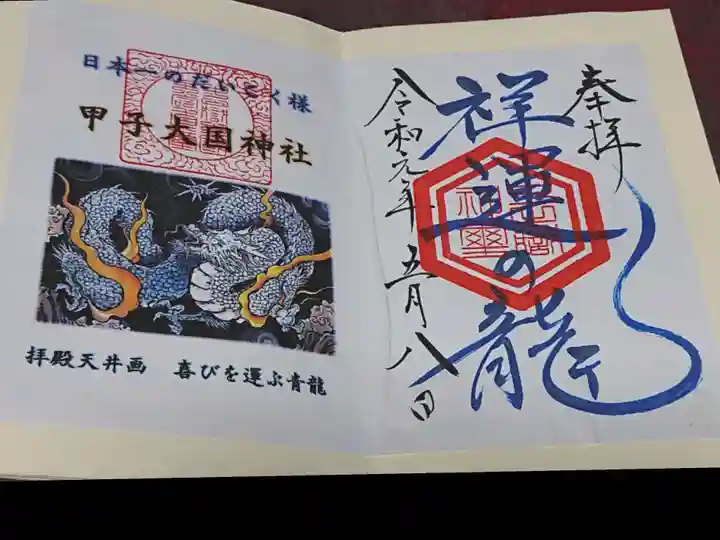 日本一のだいこく様
甲子大国神社
拝殿天井画　喜びを運ぶ青龍
奉拝
祥運の龍
令和元年五月八日